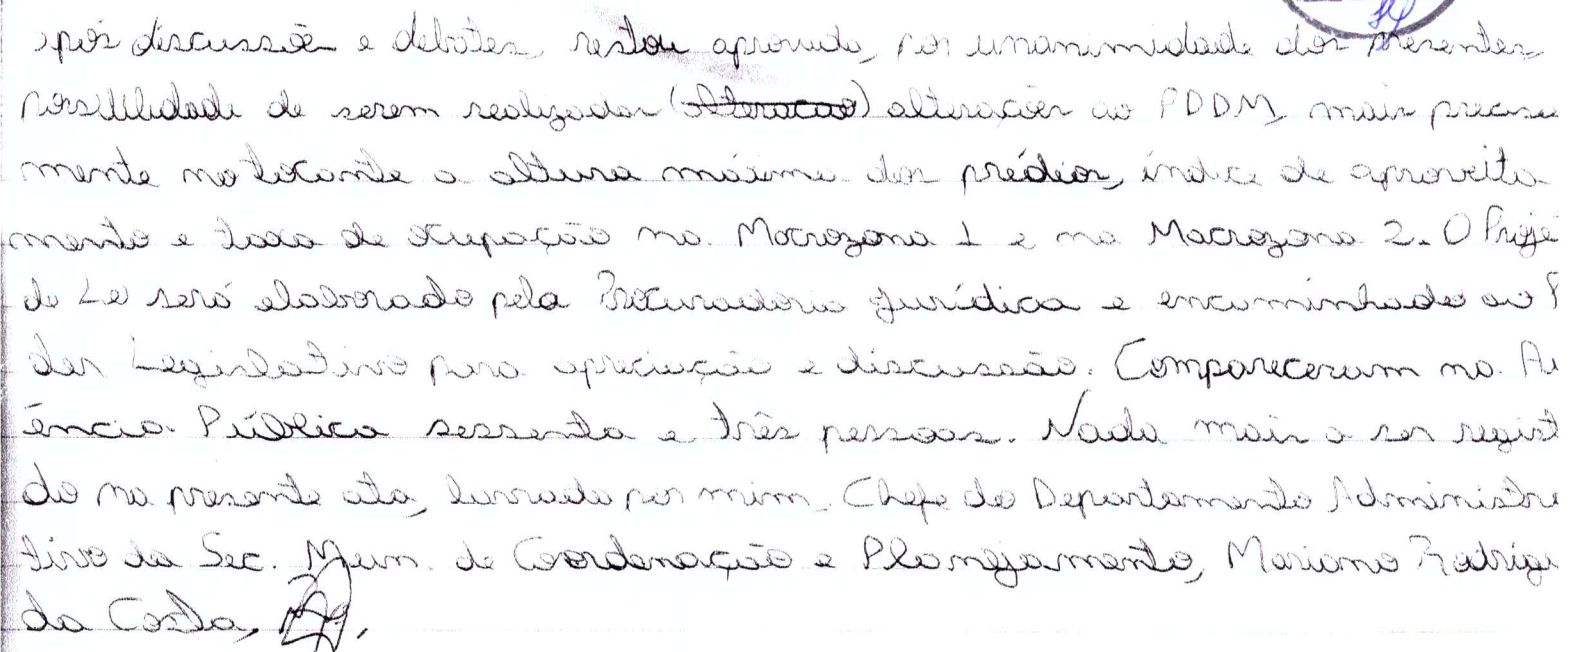 pós discussão e debates, restou aprovado, por unanimidade dos presentes,
possibilidade de serem realizadas (alteracao) alterações ao PDDM, mais precisa
mente no tocante a altura máxima dos prédios, índice de aproveita
mento e taxa de ocupação na Macrozona 1 e na Macrozona 2. O Proje
de Lei será elaborado pela Procuradoria Jurídica e encaminhado ao P
der Legislativo para apreciação e discussão. Compareceram na Au
ência Pública sessenta e três pessoas. Nada mais a ser regist
do na presente ata, lavrada por mim, Chefe do Departamento Administra
tivo da Sec. Mun. de Coordenação e Planejamento, Mariana Rodrigu
da Costa,